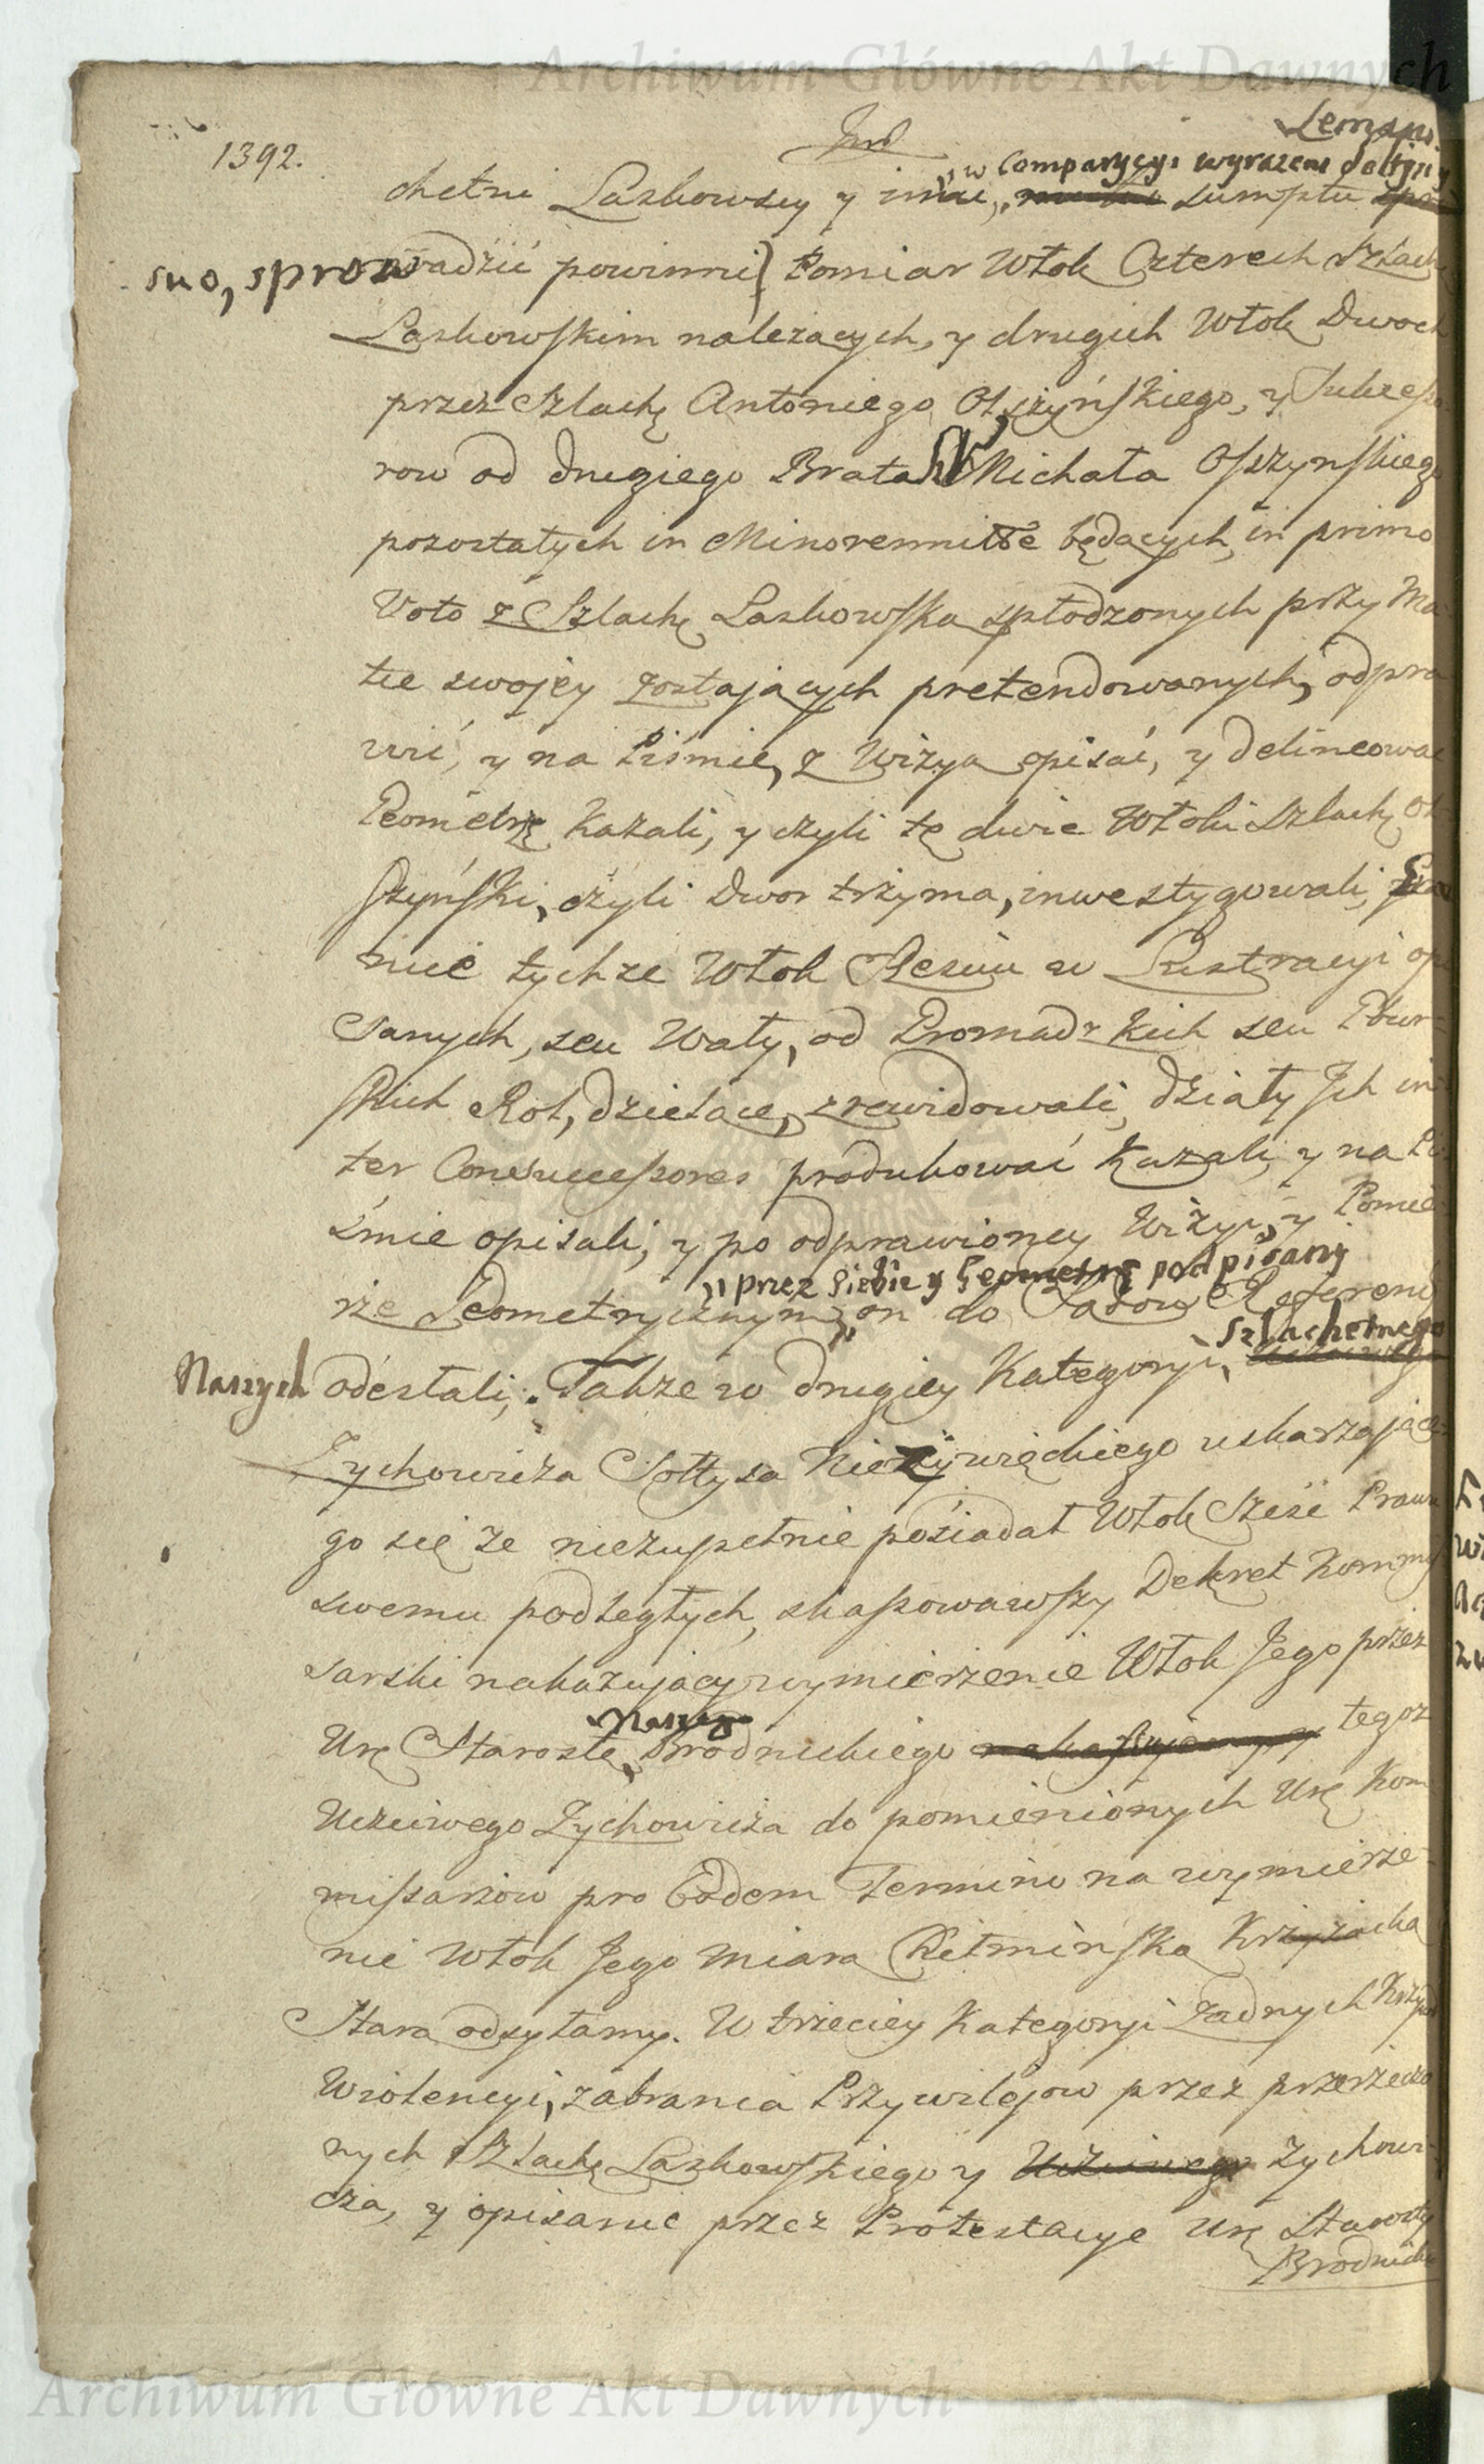 Archiwum Główne Akt Dawnych
1392.
Leman
„w Comparycyi wyrazeni
chetni Laskowscy y inni, sumptu
suo, sprowadzić powinni) Pomiar Włok Czterech Szlach
Laskowskim nalezących, y drugich Włok Dwoch
przez Szlachę Antoniego Olszyńskiego, y Sukcesso
row od drugiego Brata Michała Olszynskiego
pozostałych in Minorennitate będących, in primo
Voto z Szlachę Laskowską spłodzonych przy Ma
tce swojey zostających pretendowanych, odpra
wić, y na Pismie, z Wizyą opisać, y delineowac
Geometrze kazali, y czyli tę dwie Włoki Szlachę Ol
szyński, czyli Dwor trzyma, inwestygowali, Gra
nice tychze Włok Sześciu w Lustracyi opi
sanych, seu Wały, od Gromadzkich seu Dwor
skich Rol, dzielące, zrewidowali, działy Ich in
ter Consuccessores produkować kazali, y na Pi
śmie opisali, y po odprawioney Wizyi, y Pomie
„przez siebie y Geometrę podpisany
rze Geometrycznym, on do Sądow Referend
Szlachetnego
Naszych odesłali, Takze w drugiey Kategoryi,
Zychowicza Sołtysa Niezywięckiego uskarzające
go się ze niezupełnie posiadał Włok Sześć Prawu
swemu podległych, skassowawszy Dekret Kommis
sarski nakazujący wymierzenie Włok Jego przez
Naszego
Urę Starostę Brodnickiego tegoz
Uczciwego Zychowicza do pomienionych Urę Kom
missarzow pro Eodem Termino na wymierze
nie Włok Jego Miarą Chełmińską Krzyzacką
Starą odsyłamy. W trzeciey Kategoryi zadnych Krzywd
Wiolencyi, zabrania Przywilejow przez przerzeczo
nych Szlachę Laskowskiego y Uczciwego Zychowi
cza, y opisanie przez Protestacye Urę Starosty
Brodnicki
Archiwum Główne Akt Dawnych